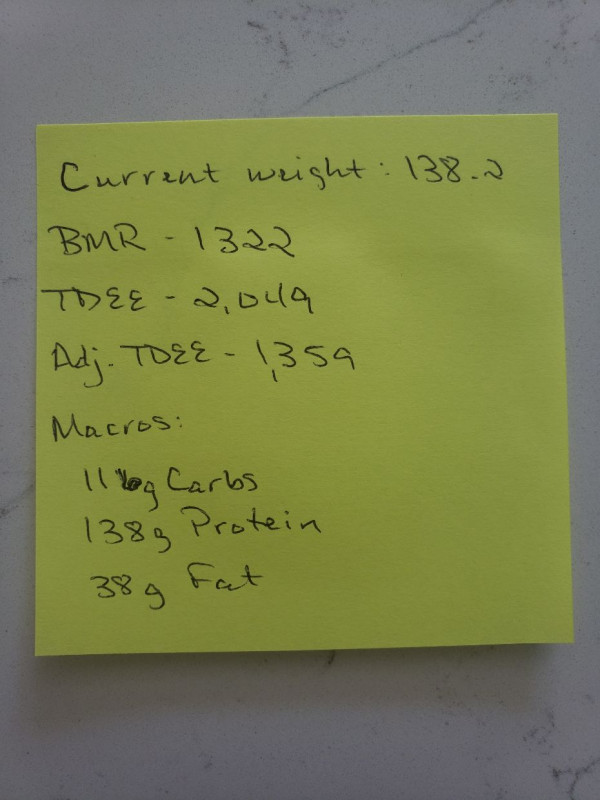 Current weight: 138.2
BMR - 1322
TDEE - 2,049
Adj. TDEE - 1,359
Macros:
116g Carbs
138g Protein
38g Fat